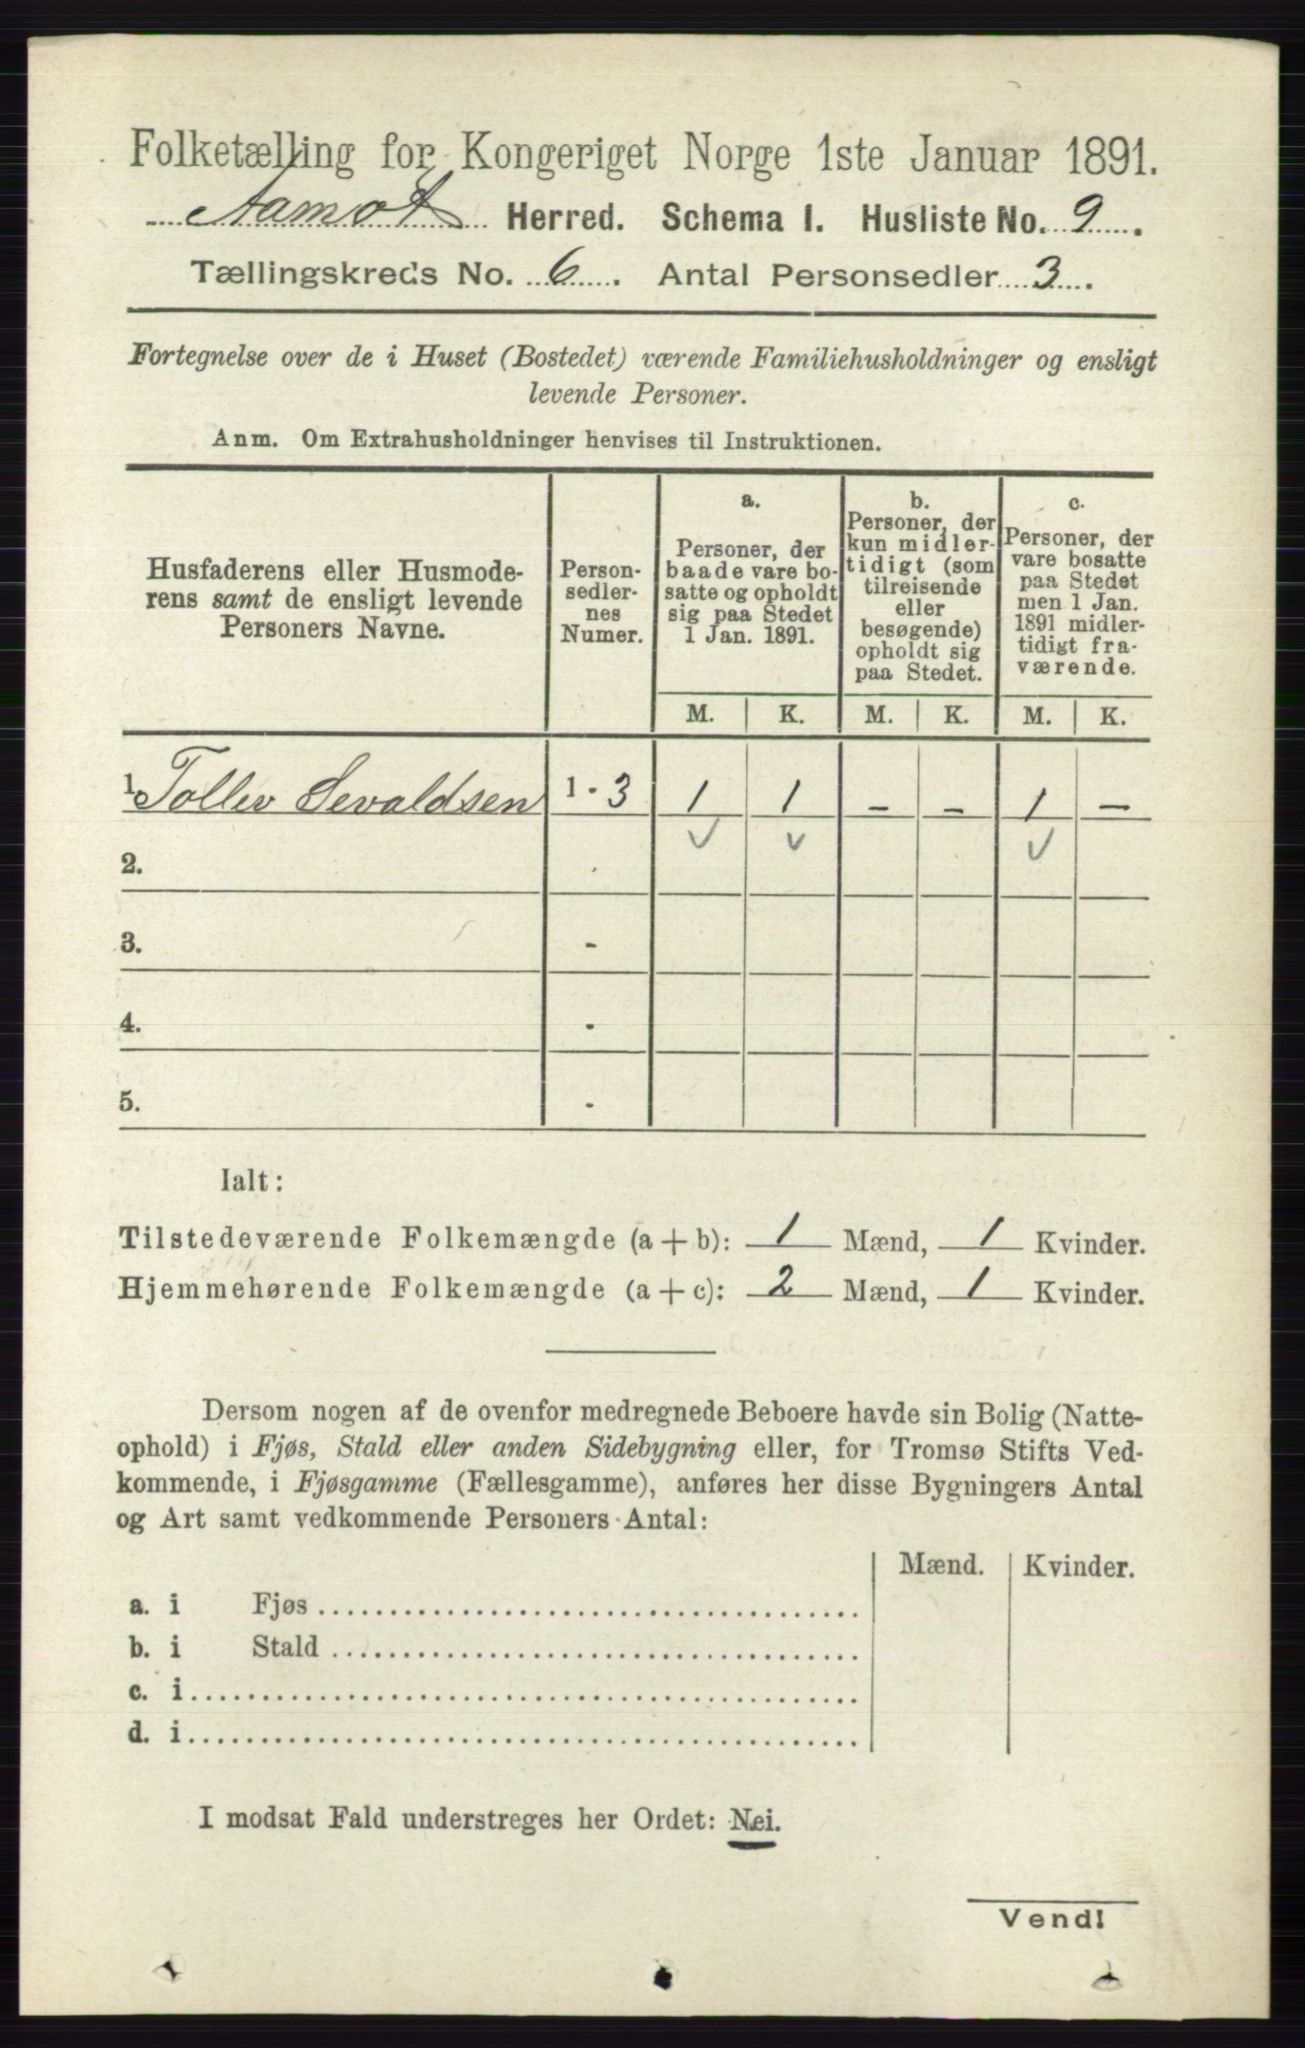 Folketælling for Kongeriget Norge 1ste Januar 1891.
Aamot Herred. Schema I. Husliste No. 9.
Tællingskreds No. 6. Antal Personsedler 3.
Fortegnelse over de i Huset (Bostedet) værende Familiehusholdninger og ensligt
levende Personer.
Anm. Om Extrahusholdninger henvises til Instruktionen.
Husfaderens eller Husmode-
rens samt de ensligt levende
Personers Navne.
Person-
sedler-
nes
Numer.
a.
Personer, der
baade vare bo-
satte og opholdt
sig paa Stedet
1 Jan. 1891.
b.
Personer, der
kun midler-
tidigt (som
tilreisende
eller
besøgende)
opholdt sig
paa Stedet.
c.
Personer, der
vare bosatte
paa Stedet
men 1 Jan.
1891 midler-
tidigt fra-
værende.
M. K. M. K. M. K.
1 Tollev Sevaldsen 1 - 3 1 1 - - 1 -
2.
3. -
4. -
5. -
Ialt:
Tilstedeværende Folkemængde (a + b): 1 Mænd, 1 Kvinder.
Hjemmehørende Folkemængde (a + c): 2 Mænd, 1 Kvinder.
Dersom nogen af de ovenfor medregnede Beboere havde sin Bolig (Natte-
ophold) i Fjøs, Stald eller anden Sidebygning eller, for Tromsø Stifts Ved-
kommende, i Fjøsgamme (Fællesgamme), anføres her disse Bygningers Antal
og Art samt vedkommende Personers Antal:
Mænd. Kvinder.
a. i Fjøs
b. i Stald
c. i
d. i
I modsat Fald understreges her Ordet: Nei.
Vend!